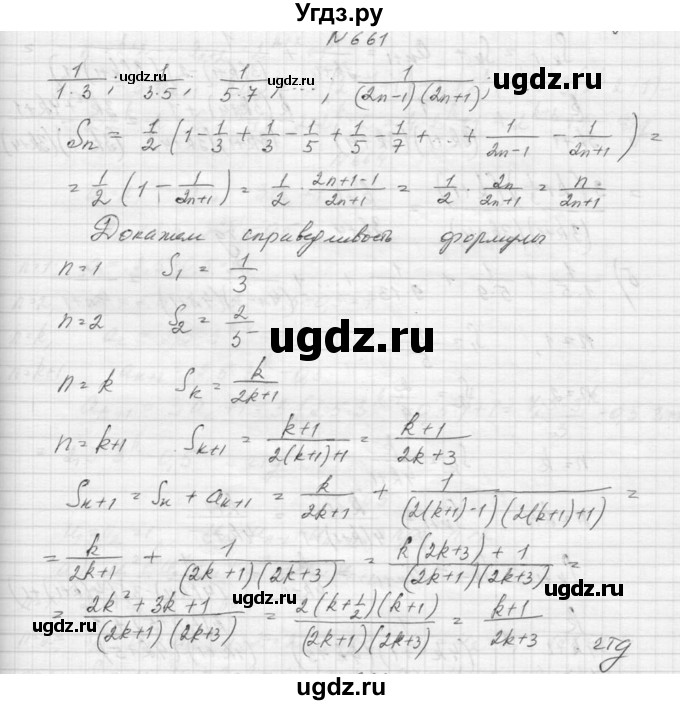 Угдз.ру
N 661
1/(1·3); 1/(3·5); 1/(5·7); ...; 1/((2n-1)(2n+1));
Sn = 1/2 (1 - 1/3 + 1/3 - 1/5 + 1/5 - 1/7 + ... + 1/(2n-1) - 1/(2n+1)) =
= 1/2 (1 - 1/(2n+1)) = 1/2 · (2n+1-1)/(2n+1) = 1/2 · 2n/(2n+1) = n/(2n+1)
Докажем справедливость формулы
n=1 S₁ = 1/3
n=2 S₂ = 2/5
ugdz.ru
ugdz.ru
n=k Sk = k/(2k+1)
n=k+1 Sk+1 = (k+1)/(2(k+1)+1) = (k+1)/(2k+3)
Sn+1 = Sn + ak+1 = k/(2k+1) + 1/((2(k+1)-1)(2(k+1)+1)) =
= k/(2k+1) + 1/((2k+1)(2k+3)) = (k(2k+3)+1)/((2k+1)(2k+3)) =
ugdz.ru
ugdz.ru
= (2k²+3k+1)/((2k+1)(2k+3)) = 2(k+1/2)(k+1)/((2k+1)(2k+3)) = (k+1)/(2k+3) чтд
ugdz.ru
ugdz.ru
ugdz.ru